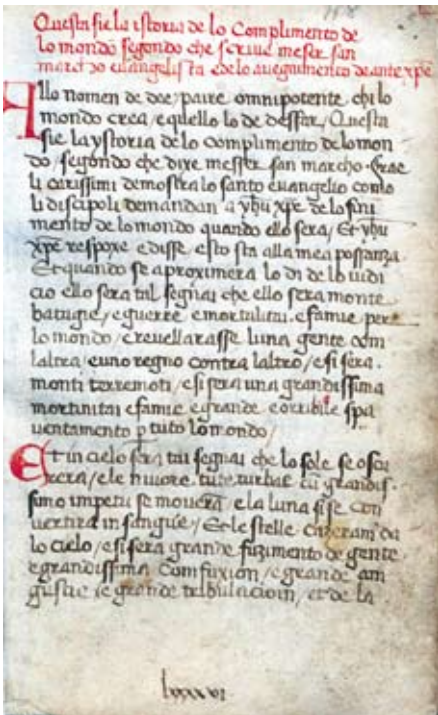 Questa sie la istoria de lo Complimento de
lo mondo segondo che scriue meser san
marcho euangelista e de lo auegnimento de ante xpē
Allo nomen de dee / paire omnipotente chi lo
mondo crea / e quello lo de desfar / Questa
sie la ystoria de lo complimento de lo mon
do / segondo che dixe messer san marcho · frae
li carissimi demostra lo santo euangelio como
li discipoli demandan a yhu xpē de lo fini
mento de lo mondo quando ello sera / Et yhu
xpē respoxe e disse esto sta alla mea possanza
Et quando se aproximera lo di de lo iudi
cio ello sera tal segnai che ello sera monte
batagie / e guerre e mortalitai e famie per
lo mondo / e reuellarasse luna gente com
laltra e uno regno contra laltro / e si sera
monti terremoti / e si sera una grandissima
mortaritai e famie e grande e orribile spa
uentamento p tuto lo mondo /
Et in cielo sera tai segnai che lo sole se oscu
rera / e le niuore tute turbae cū grandis
simo impetu se mouerā e la luna si se con
uertira in sangue / Et le stelle cazeram da
lo cielo / e si sera grande fuzimento de gente
e grandissima Comfuxion / e grande am
gustie / e grande tribulacioin / et de la
lxxxvi